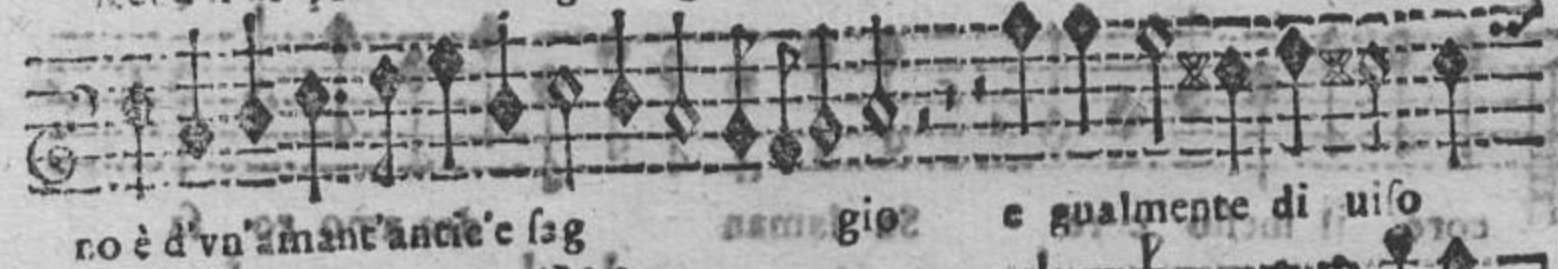 no è d'vn'amant'antic'e ſag gio e gualmente di uiſo